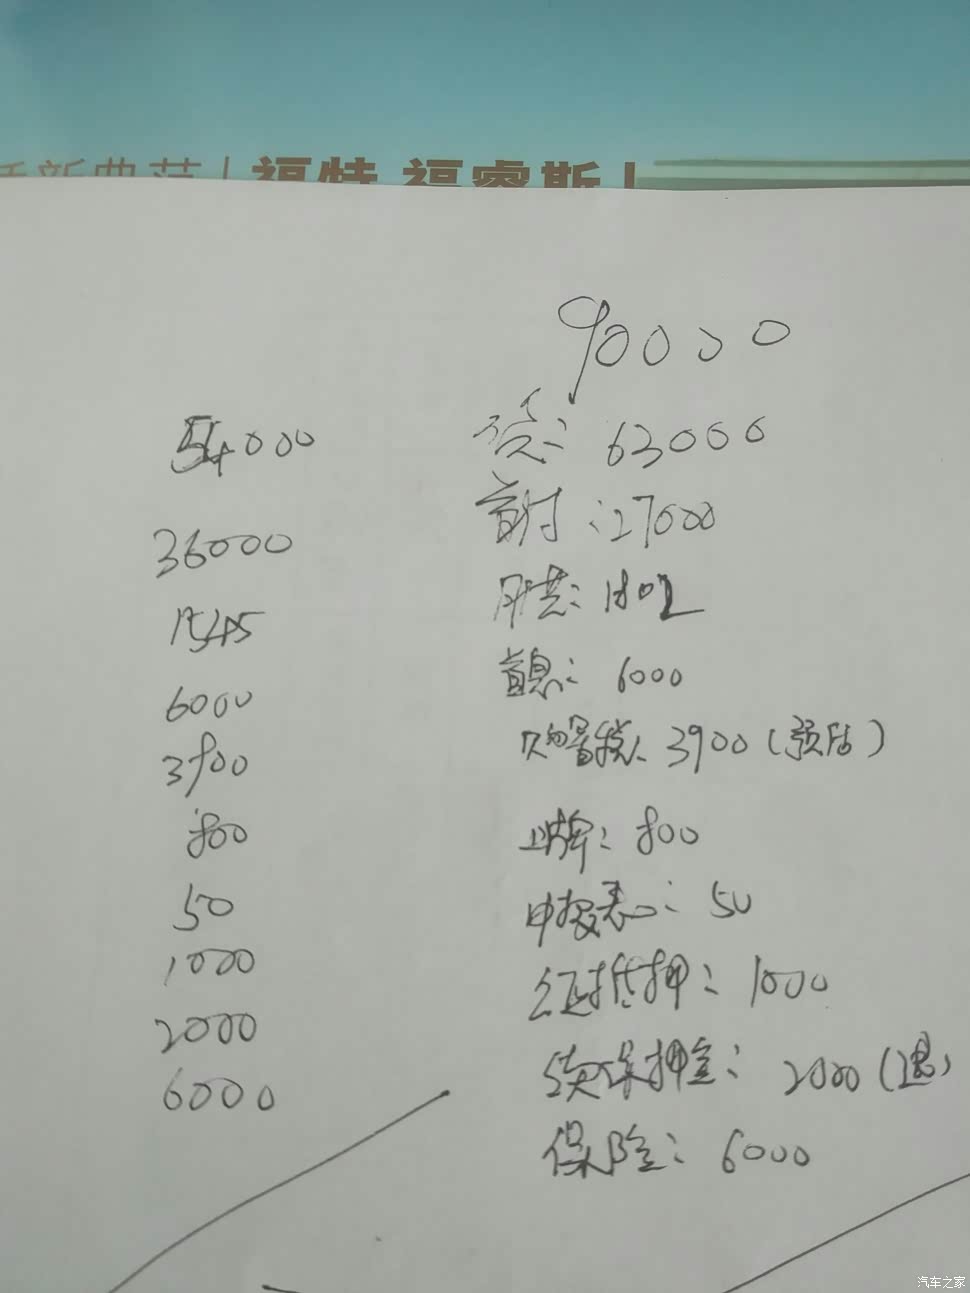 新典范 | 福特 福睿斯 |
90000
54000 贷: 63000
36000 首付: 27000
1545 月供: 1802
6000 首息: 6000
3900 购置税: 3900 (预估)
800 上牌: 800
50 申报表: 50
1000 公证抵押: 1000
2000 续保押金: 2000 (退)
6000 保险: 6000
汽车之家